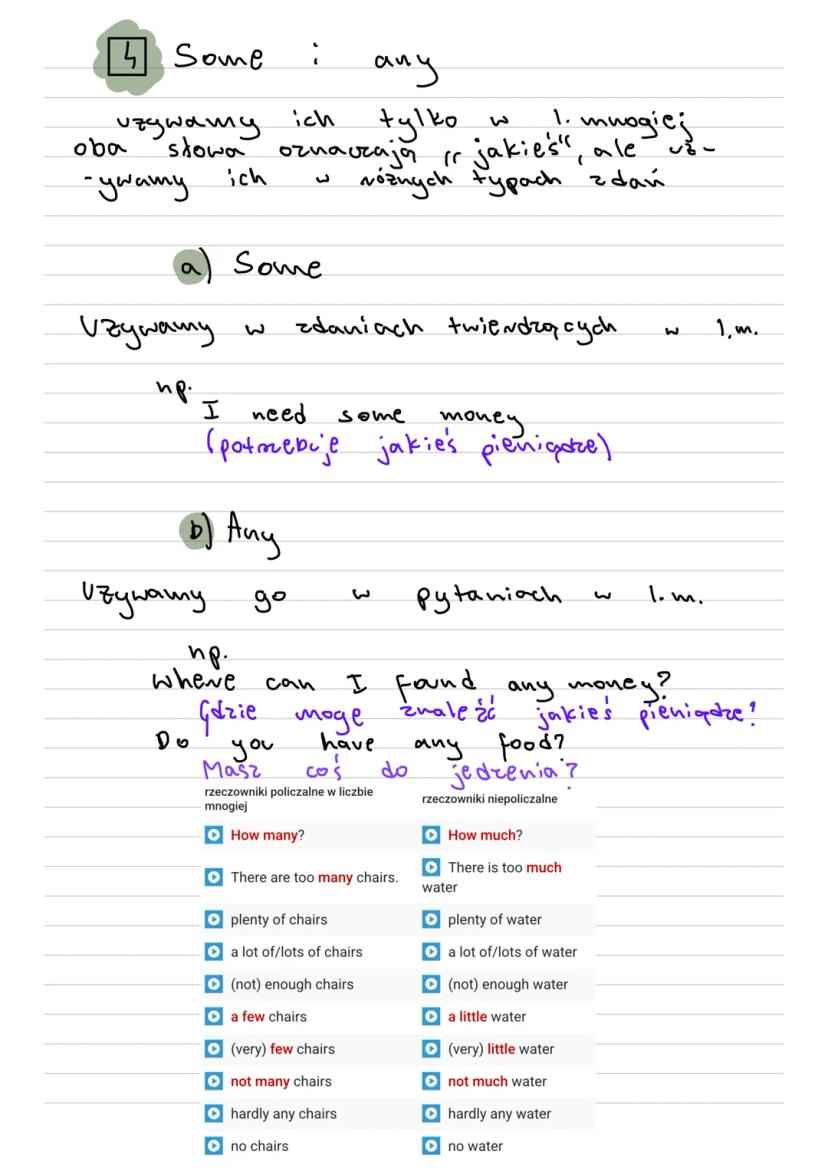 4 Some i any
używamy ich tylko w l. mnogiej
oba słowa oznaczają „jakieś“, ale uż-
-ywamy ich w różnych typach zdań
a) Some
Używamy w zdaniach twierdzących w l.m.
np.
I need some money
(potrzebuje jakieś pieniądze)
b) Any
Używamy go w pytaniach w l.m.
np.
Where can I found any money?
Gdzie moge znaleźć jakieś pieniądze?
Do you have any food?
Masz coś do jedzenia?
rzeczowniki policzalne w liczbie
mnogiej
rzeczowniki niepoliczalne
How many? How much?
There are too many chairs. There is too much
water
plenty of chairs plenty of water
a lot of/lots of chairs a lot of/lots of water
(not) enough chairs (not) enough water
a few chairs a little water
(very) few chairs (very) little water
not many chairs not much water
hardly any chairs hardly any water
no chairs no water